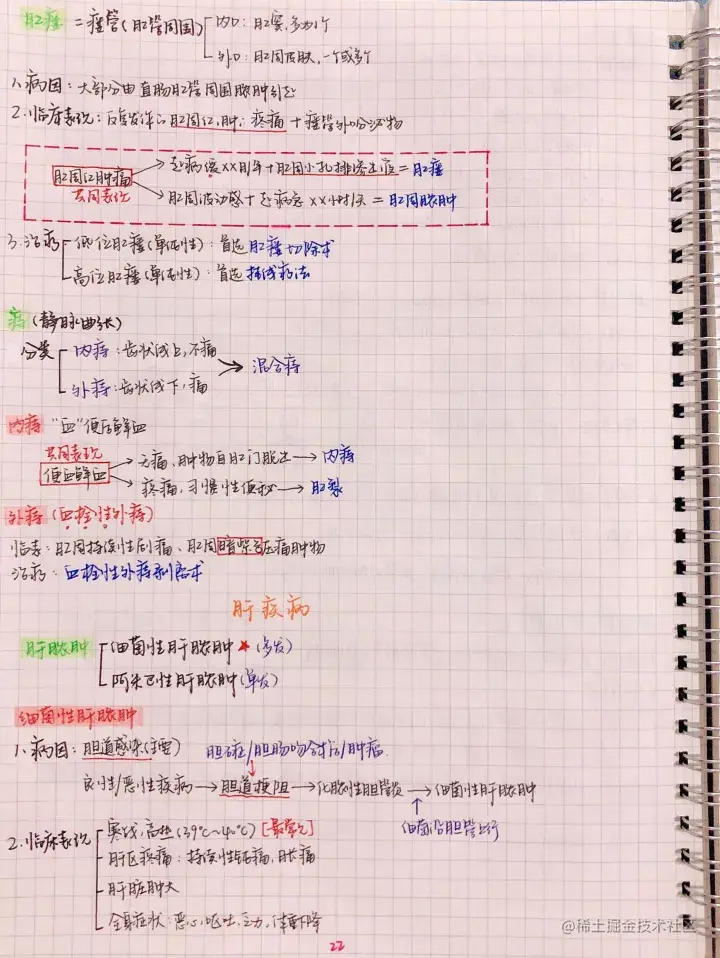 肛瘘 = 瘘管(肛管周围) 内口:肛窦,多为1个
外口:肛周皮肤,一个或多个
1.病因:大部分由直肠肛管周围脓肿引起
2.临床表现:反复发作的肛周红、肿、疼痛+瘘管外口分泌物
肛周红肿痛 → 起病缓XX月/年+肛周小孔排渗出液=肛瘘
共同表现
→ 肛周波动感+起病急XX小时/天=肛周脓肿
3.治疗 低位肛瘘(单纯性):首选肛瘘切除术
高位肛瘘(单纯性):首选挂线疗法
痔(静脉曲张)
分类 内痔:齿状线上,不痛 → 混合痔
外痔:齿状线下,痛
内痔 "血"便后鲜血
共同表现
便血鲜血 → 无痛、肿物自肛门脱出 → 内痔
→ 疼痛,习惯性便秘 → 肛裂
外痔(血栓性外痔)
临表:肛周持续性剧痛、肛周暗紫色压痛肿物
治疗:血栓性外痔剥离术
肝疾病
肝脓肿 细菌性肝脓肿★(多发)
阿米巴性肝脓肿(单发)
细菌性肝脓肿
1.病因:胆道感染(主要) 胆石症/胆肠吻合术后/肿瘤
良性/恶性疾病→胆道梗阻→化脓性胆管炎→细菌性肝脓肿
细菌沿胆管上行
2.临床表现 寒战,高热(39℃~40℃)[最常见]
肝区疼痛:持续性钝痛,胀痛
肝脏肿大
全身症状:恶心,呕吐,乏力,体重下降
22
@稀土掘金技术社区